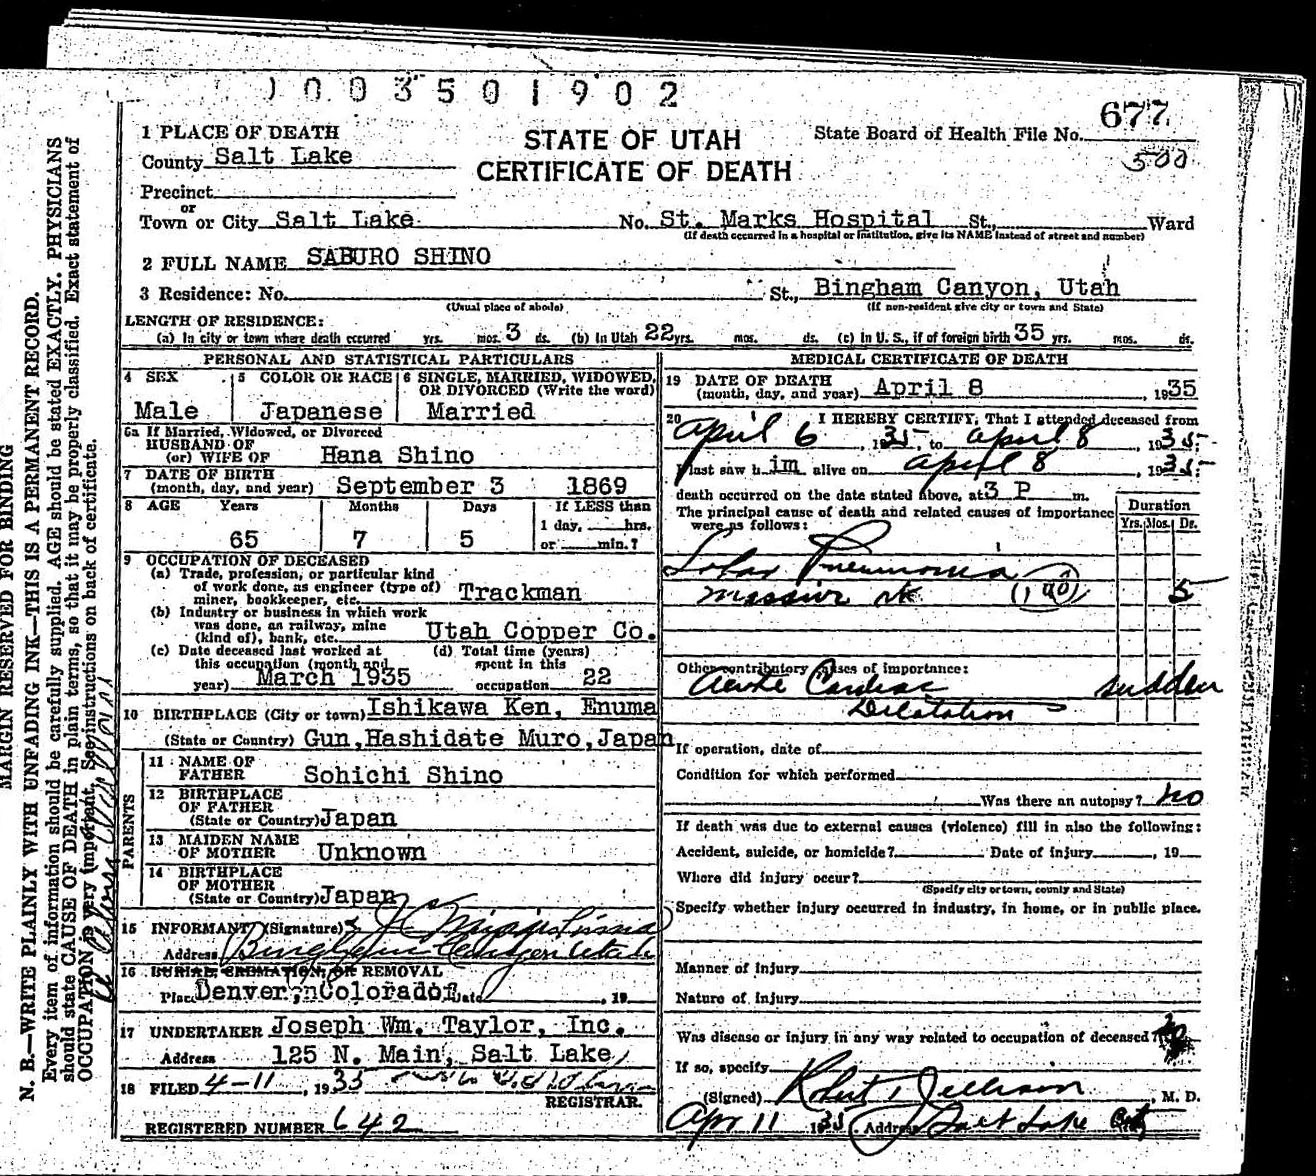 1003501902
677
500
1 PLACE OF DEATH
STATE OF UTAH
CERTIFICATE OF DEATH
State Board of Health File No.
County Salt Lake
Precinct
or
Town or City Salt Lake No. St. Marks Hospital St., Ward
(If death occurred in a hospital or institution, give its NAME instead of street and number)
2 FULL NAME SABURO SHINO
3 Residence: No. St., Bingham Canyon, Utah
(Usual place of abode) (If non-resident give city or town and State)
LENGTH OF RESIDENCE:
(a) In city or town where death occurred yrs. mos. 3 ds. (b) In Utah 22 yrs. mos. ds. (c) In U. S., if of foreign birth 35 yrs. mos. ds.
PERSONAL AND STATISTICAL PARTICULARS
4 SEX
Male
5 COLOR OR RACE
Japanese
6 SINGLE, MARRIED, WIDOWED,
OR DIVORCED (Write the word)
Married
6a If Married, Widowed, or Divorced
HUSBAND OF
(or) WIFE OF Hana Shino
7 DATE OF BIRTH
(month, day, and year) September 3 1869
8 AGE Years Months Days If LESS than
1 day, hrs.
65 7 5 or min.?
9 OCCUPATION OF DECEASED
(a) Trade, profession, or particular kind
of work done, as engineer (type of)
miner, bookkeeper, etc. Trackman
(b) Industry or business in which work
was done, as railway, mine
(kind of), bank, etc. Utah Copper Co.
(c) Date deceased last worked at
this occupation (month and
year) March 1935
(d) Total time (years)
spent in this
occupation 22
10 BIRTHPLACE (City or town) Ishikawa Ken, Enuma
(State or Country) Gun, Hashidate Muro, Japan
PARENTS
11 NAME OF
FATHER Sohichi Shino
12 BIRTHPLACE
OF FATHER
(State or Country) Japan
13 MAIDEN NAME
OF MOTHER Unknown
14 BIRTHPLACE
OF MOTHER
(State or Country) Japan
15 INFORMANT (Signature)
Address Bingham Canyon Utah
16 BURIAL, CREMATION, OR REMOVAL
Place Denver, Colorado Date , 19
17 UNDERTAKER Joseph Wm. Taylor, Inc.
Address 125 N. Main, Salt Lake
18 FILED 4-11, 1935
REGISTRAR.
REGISTERED NUMBER 642
MEDICAL CERTIFICATE OF DEATH
19 DATE OF DEATH
(month, day, and year) April 8 , 1935
20 I HEREBY CERTIFY, That I attended deceased from
April 6 , 1935 to April 8 , 1935
I last saw him alive on April 8 , 1935
death occurred on the date stated above, at 3 P m.
The principal cause of death and related causes of importance
were as follows:
Duration
Yrs. Mos. Ds.
Lobar Pneumonia
massive 5
Other contributory causes of importance:
Acute Cardiac sudden
Dilatation
If operation, date of
Condition for which performed
Was there an autopsy? no
If death was due to external causes (violence) fill in also the following:
Accident, suicide, or homicide? Date of injury , 19
Where did injury occur?
(Specify city or town, county and State)
Specify whether injury occurred in industry, in home, or in public place.
Manner of injury
Nature of injury
Was disease or injury in any way related to occupation of deceased? No
If so, specify
(Signed) Robert , M. D.
Apr 11 1935 Address Salt Lake City
MARGIN RESERVED FOR BINDING
N. B.—WRITE PLAINLY WITH UNFADING INK—THIS IS A PERMANENT RECORD.
Every item of information should be carefully supplied. AGE should be stated EXACTLY. PHYSICIANS
should state CAUSE OF DEATH in plain terms, so that it may be properly classified. Exact statement of
OCCUPATION is very important. See instructions on back of certificate.